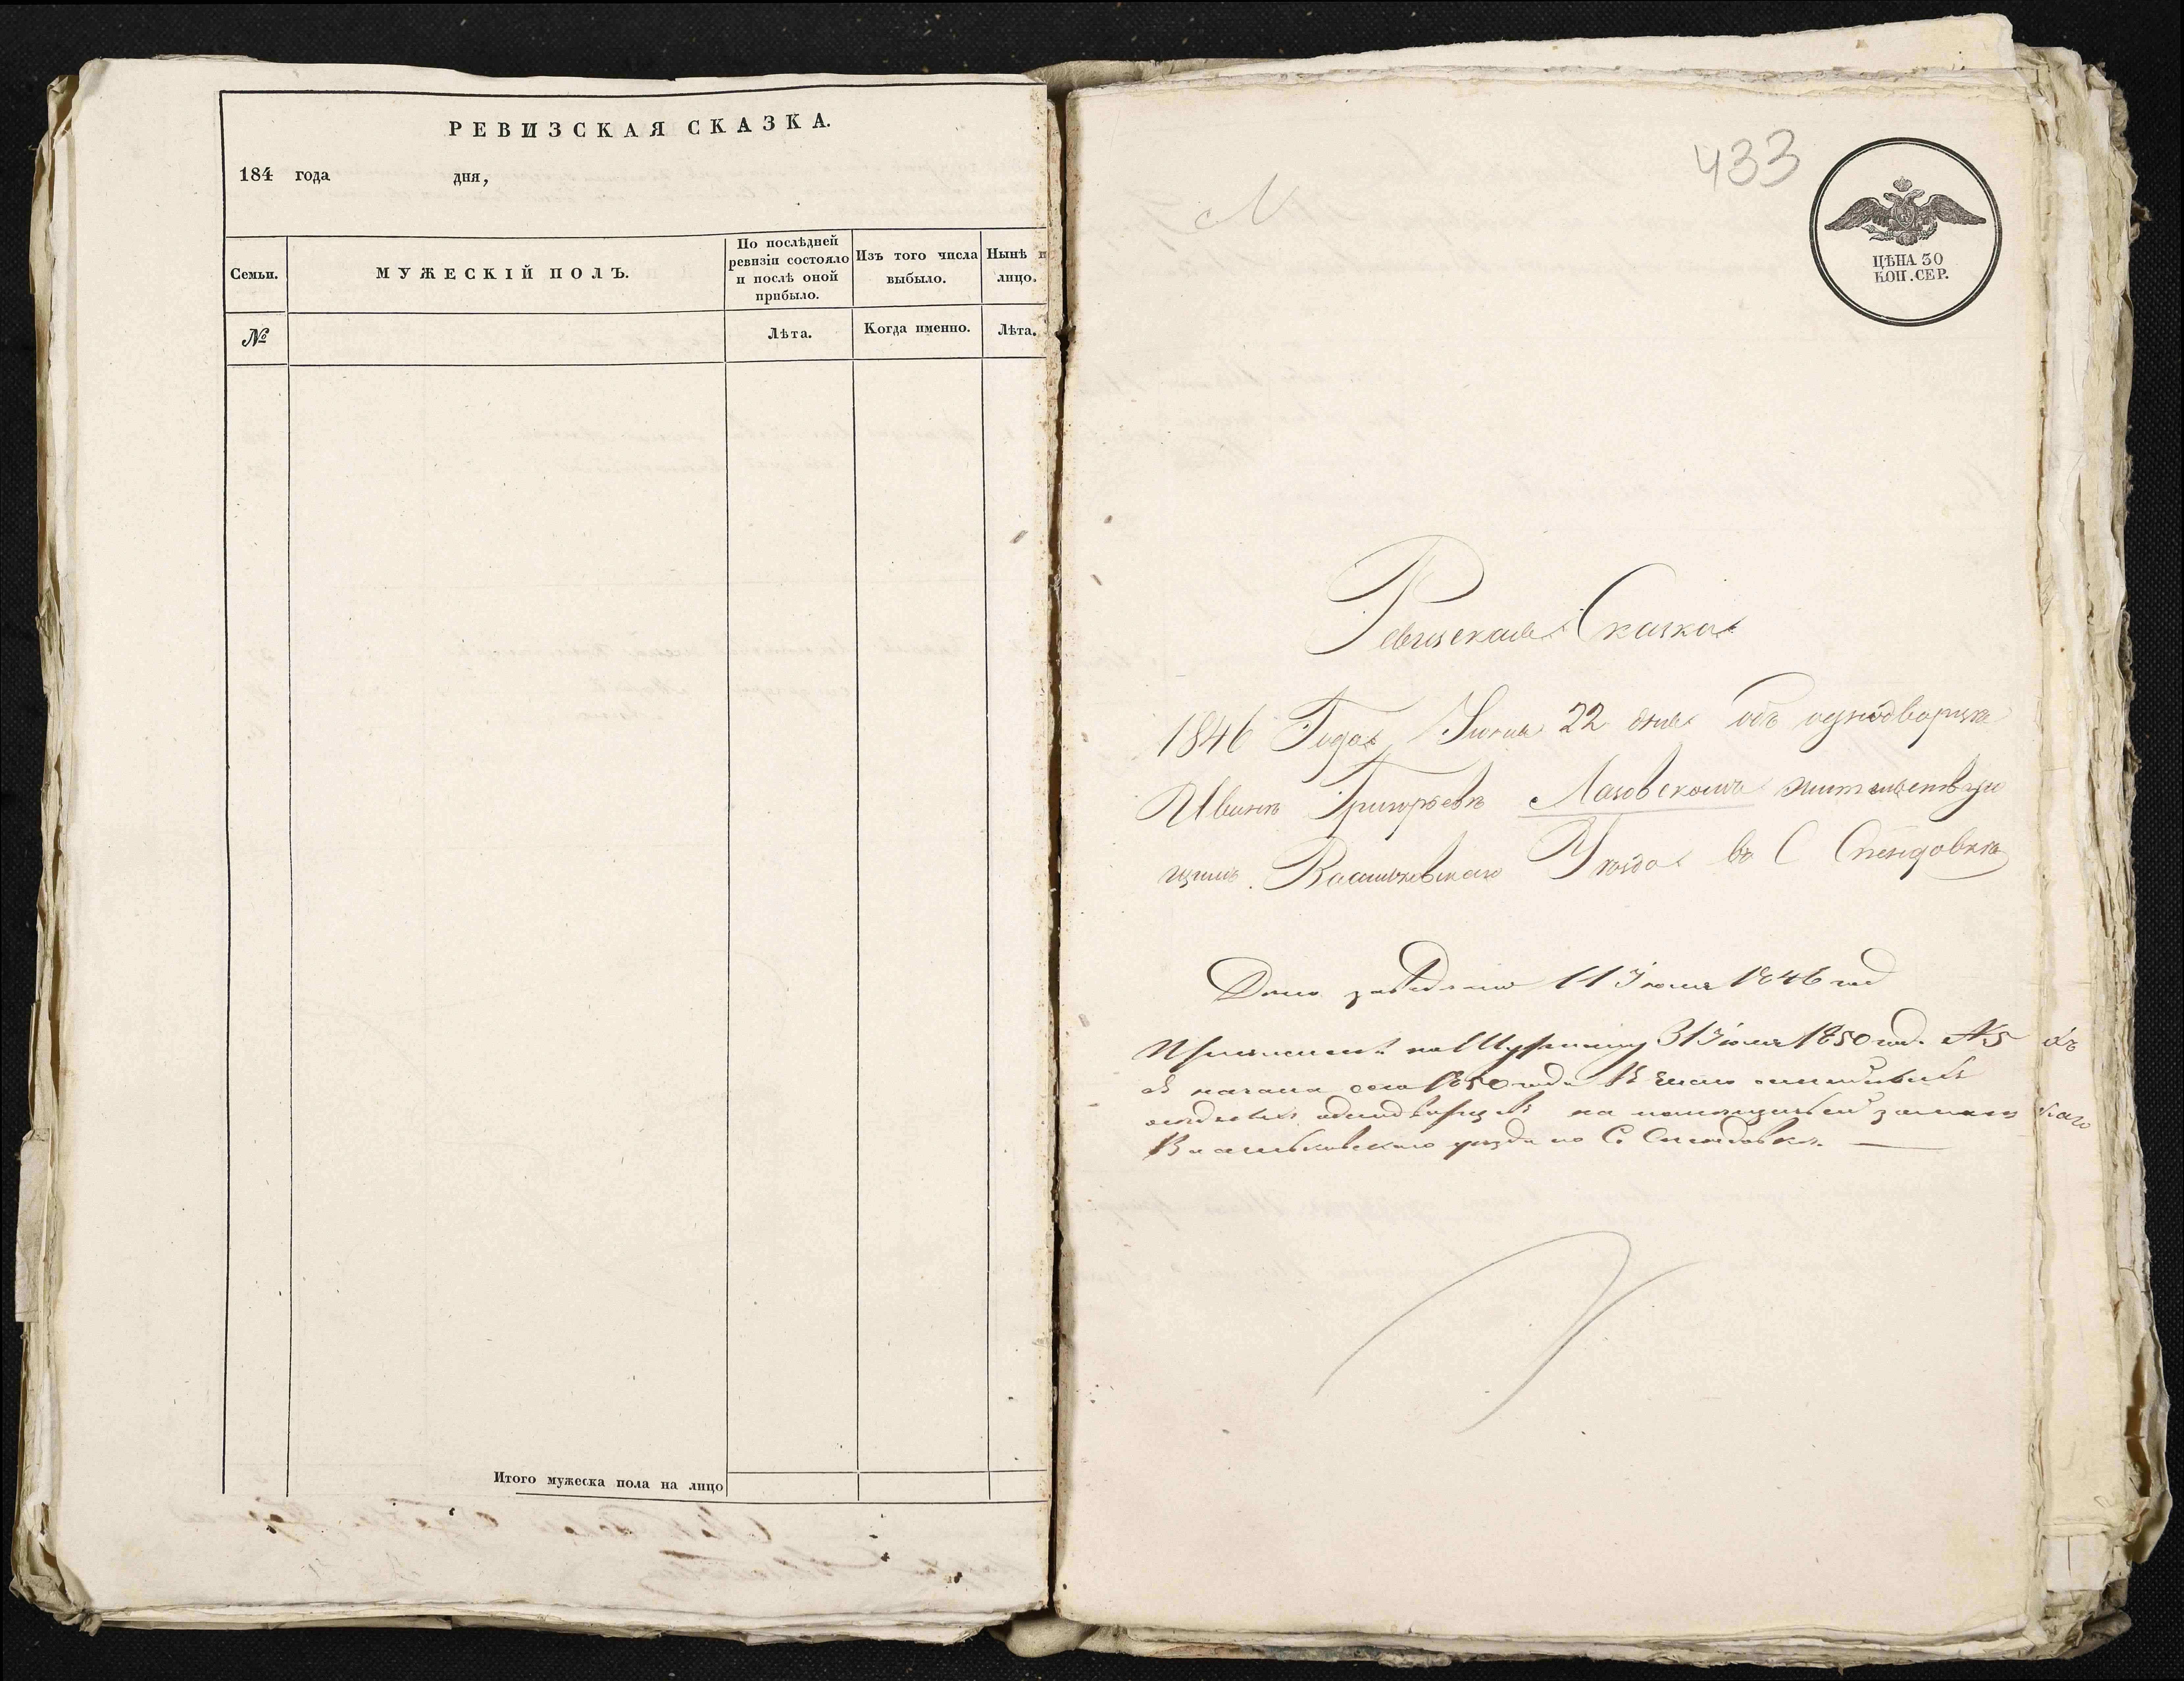 РЕВИЗСКАЯ СКАЗКА.
184 года дня,
Семьи.
МУЖЕСКІЙ ПОЛЪ.
По послѣдней
ревизіи состояло
и послѣ оной
прибыло.
Изъ того числа
выбыло.
Нынѣ н
лицо.
№
Лѣта.
Когда именно.
Лѣта.
Итого мужеска пола на лицо
433
ЦѢНА 30
КОП. СЕР.
Ревизская Сказка
1846 Года Іюня 22 дня объ однодворцѣ
Иванѣ Григорьевѣ Лазовскомъ жительствую
щимъ Васильковскаго Уѣзда въ С
Дано 11 Іюня 1846 год
31 Іюля 1850 год. №5
съ начала сего 1850 года въ число
однодворцевъ на помѣщичьей
Васильковскаго уѣзда по С.